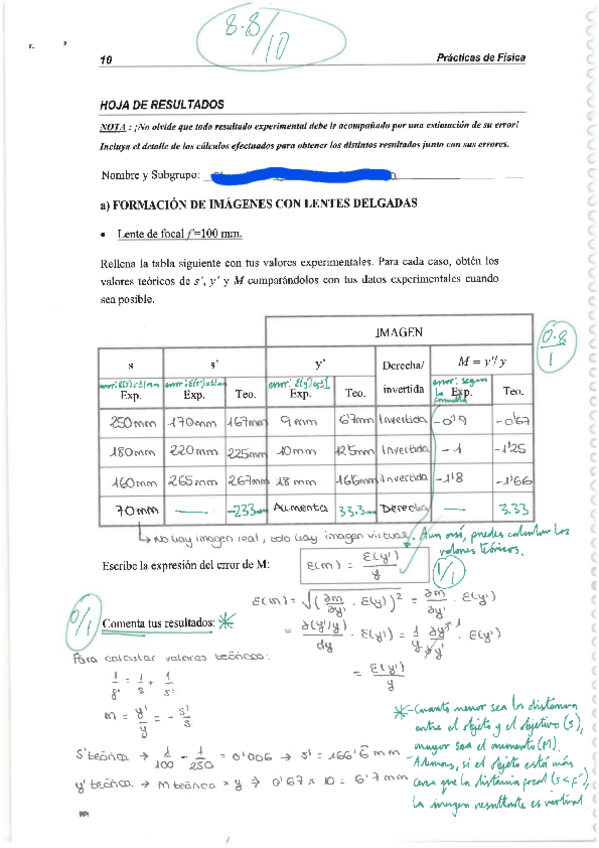 8.8/10
10 Prácticas de Física
HOJA DE RESULTADOS
NOTA : ¡No olvide que todo resultado experimental debe ir acompañado por una estimación de su error!
Incluya el detalle de los cálculos efectuados para obtener los distintos resultados junto con sus errores.
Nombre y Subgrupo:
a) FORMACIÓN DE IMÁGENES CON LENTES DELGADAS
• Lente de focal f'=100 mm.
Rellena la tabla siguiente con tus valores experimentales. Para cada caso, obtén los
valores teóricos de s', y' y M comparándolos con tus datos experimentales cuando
sea posible.
IMAGEN
0.8/1
s s' y' Derecha/ invertida M = y'/y
error: E(s)=±1mm error: E(s')=±1mm error: E(y')=±1 error: segun la formula
Exp. Exp. Teo. Exp. Teo. Exp. Teo.
250mm 170mm 167mm 9mm 6'7mm Invertida -0'9 -0'67
180mm 220mm 225mm 10mm 12'5mm Invertida -1 -1'25
160mm 265mm 267mm 18mm 16'6mm Invertida -1'8 -1'66
70mm — -233mm Aumenta 33.3mm Derecha — 3.33
↳ No hay imagen real, solo hay imagen virtual. Aun así, puedes calcular los
valores teóricos.
Escribe la expresión del error de M: E(m) = E(y')/y
1/1
E(m) = √(∂m/∂y' · E(y))² = ∂m/∂y' · E(y')
0/1
Comenta tus resultados: *
= ∂(y'/y)/dy · E(y') = 1/y ∂y'/∂y' 1 · E(y')
Para calcular valores teóricos:
= E(y')/y
1/f' = 1/s + 1/s'
m = y'/y = - s'/s
* -Cuanto menor sea la distancia
entre el objeto y el objetivo (s),
mayor sera el aumento (M).
S' teórica → 1/100 - 1/250 = 0'006 → s' = 166'6 mm
-Ademas, si el objeto está más
y' teórica → M teórica × y ⇒ 0'67 × 10 = 6'7 mm
cerca que la distancia focal (s<f'),
la imagen resultante es virtual